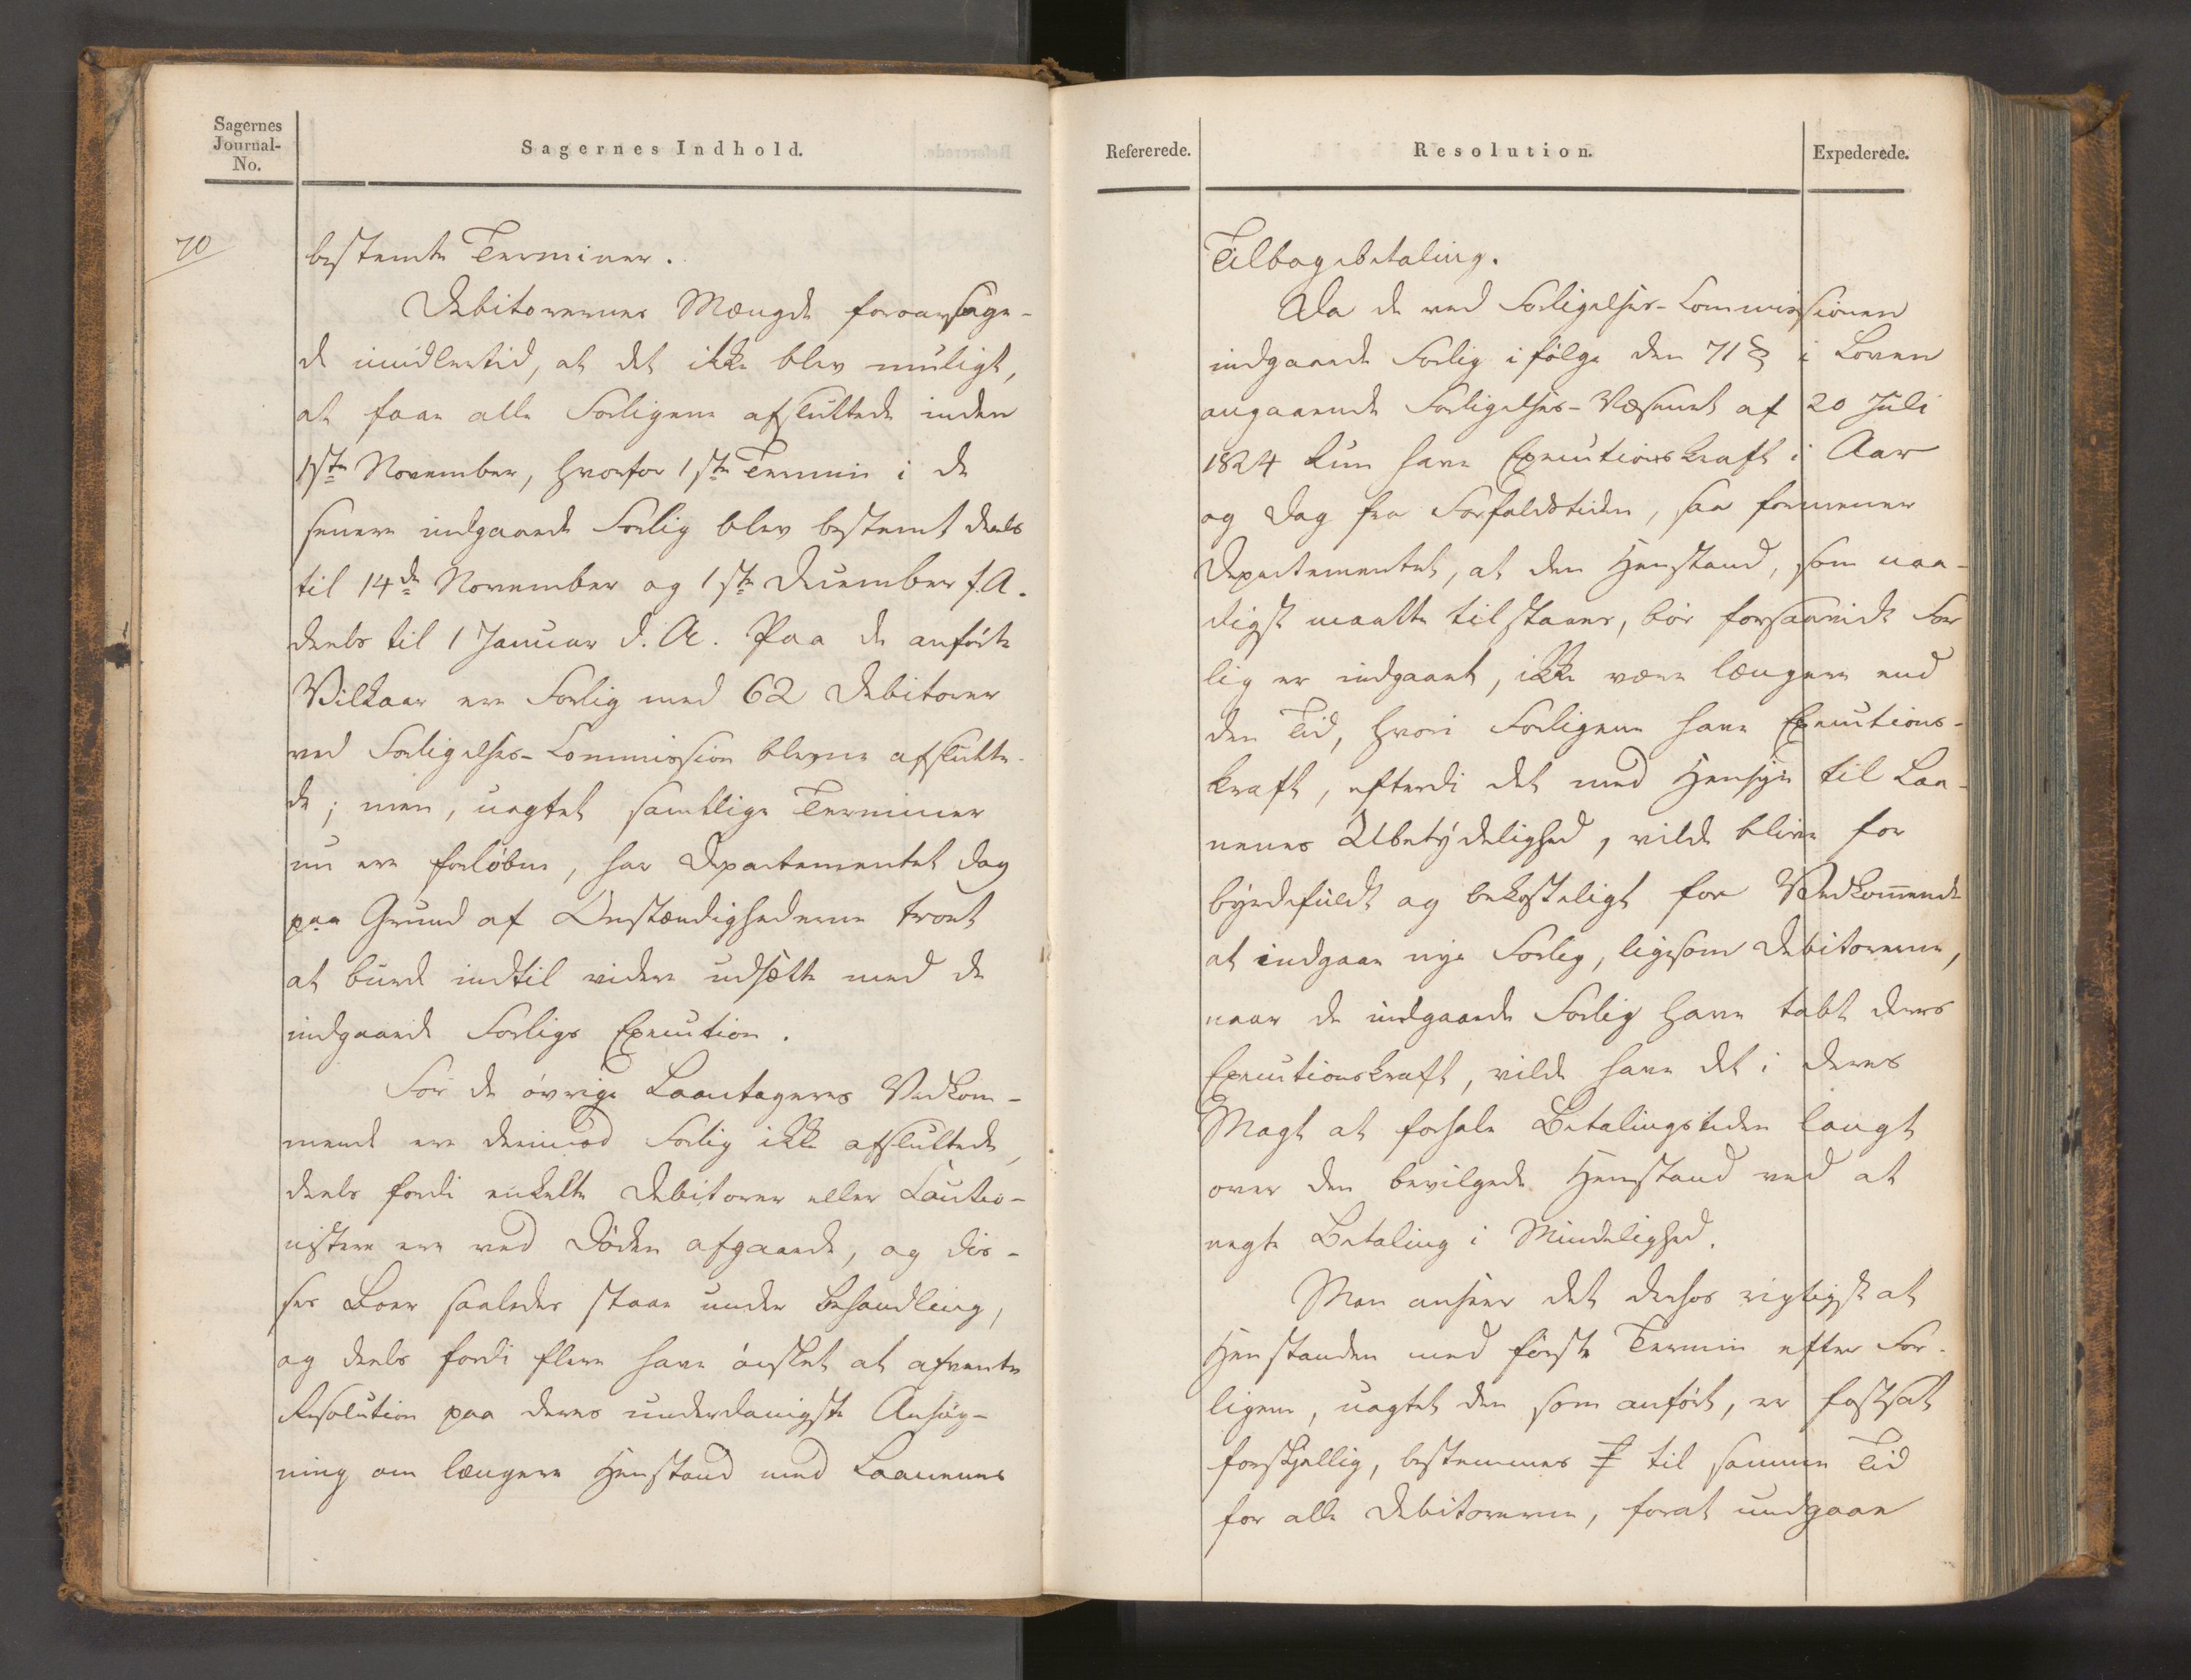 Sagernes
Journal-
No.
Sagernes Indhold.
70
bestemte Terminer.
Debitorernes Mængde foraarsage-
de imidlertid, at det ikke blev muligt,
at faae alle Forligene afsluttede inden
1ste November, hvorfor 1ste Termin i de
senere indgaaede Forlig blev bestemt deels
til 14de November og 1ste December f.A.
deels til 1 Januar d. A. Paa de anførte
Vilkaar ere Forlig med 62 Debitorer
ved Forligelses-Commission blevne afslutte-
de; men, uagtet samtlige Terminer
nu ere forløbne, har Departementet dog
paa Grund af Omstændighederne troet
at burde indtil videre udsætte med de
indgaaede Forligs Execution.
For de øvrige Laantageres Vedkom-
mende ere derimod Forlig ikke afsluttede,
deels fordi enkelte Debitorer eller Cautio-
nistere ere ved Døden afgaaede, og dis-
ses Boer saaledes staae under Behandling,
og deels fordi flere have ønsket at afvente
Resolution paa deres underdanigste Ansøg-
ning om længere Henstand med Laanenes
Refererede.
Resolution.
Expederede.
Tilbagebetaling.
Da de ved Forligelses-Commissionen
indgaaede Forlig ifølge den 71 § i Loven
angaaende Forligelses-Væsenet af 20 Juli
1824 kun have Executionskraft i Aar
og Dag fra Forfaldstiden, saa formener
Departementet, at den Henstand, som naa-
digst maatte tilstaaes, bør forsaavidt For
lig er indgaaet, ikke være længere end
den Tid, hvori Forligene have Executions-
kraft, efterdi det med Hensyn til Laa-
nenes Ubetydelighed, vilde blive for
byrdefuldt og bekosteligt for Vedkommende
at indgaae nye Forlig, ligesom Debitorerne,
naar de indgaaede Forlig have tabt deres
Executionskraft, vilde have det i deres
Magt at forhale Betalingstiden langt
over den bevilgede Henstand ved at
negte Betaling i Mindelighed.
Man anseer det derhos rigtigst at
Henstanden med første Termin efter For-
ligene, uagtet den som anført, er fastsat
forskjellig, bestemmes til samme Tid
for alle Debitorerne, forat undgaae